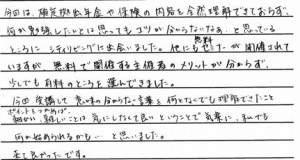 今回は、確定拠出年金や保険の内容を全然理解できておらず、
何か勉強したいとは思ってもゴリが分からないなぁ、と思っている
ところに シティリビングに出会いました。他にもセミナーが開催されて
無料
いますが、無料で開催する主催者のメリットが分からず、
少しでも有料のところを選んできました。
今回 受講して 意味の分からない言葉を何となくでも理解できたこと
ポイントをつかめば、
細かい、難しいことは 気にしなくて良いというところで 気楽に、私でも
何か始められるかも… と思いました。
来て良かったです。